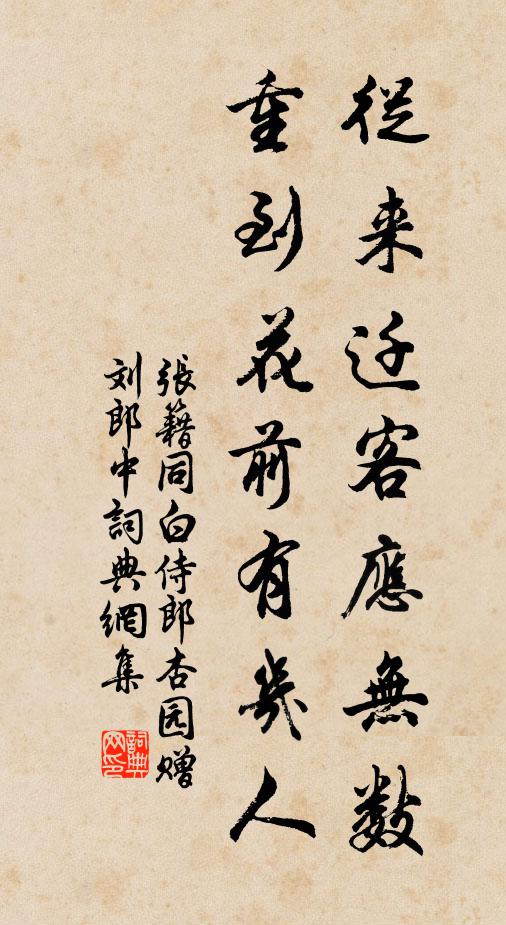 從来迁客應無數
重到花前有幾人
張籍同白侍郎杏园赠
刘郎中詞典網集
詞典网印